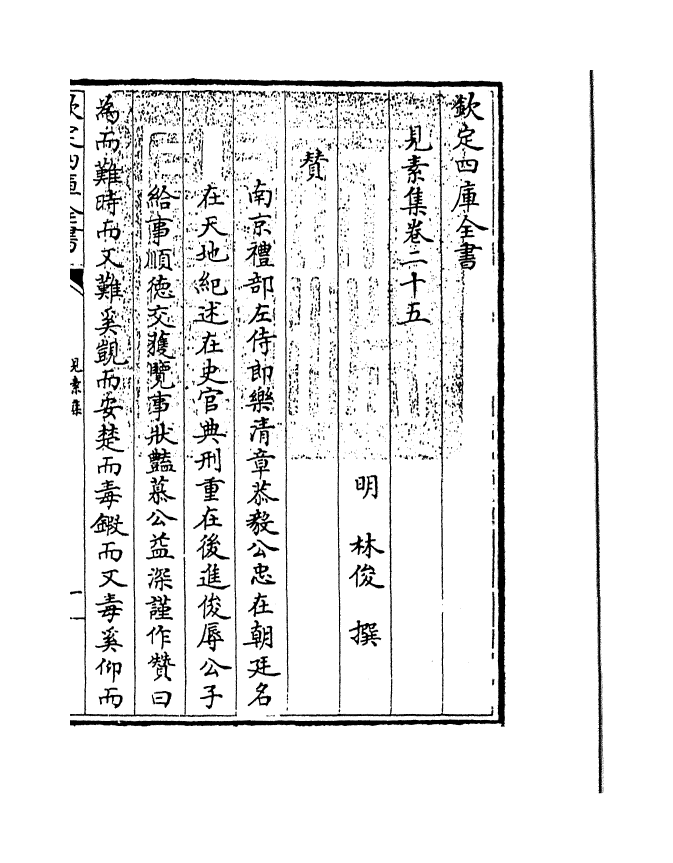 欽定四庫全書
見素集卷二十五
明 林俊 撰
贊
南京禮部左侍郎樂清章恭毅公忠在朝廷名
在天地紀述在史官典刑重在後進俊辱公子
給事順徳交獲覽事狀豔慕公益深謹作贊曰
為而難時而又難奚覬而安楚而毒鍜而又毒奚仰而
欽定四庫全書
見素集
一